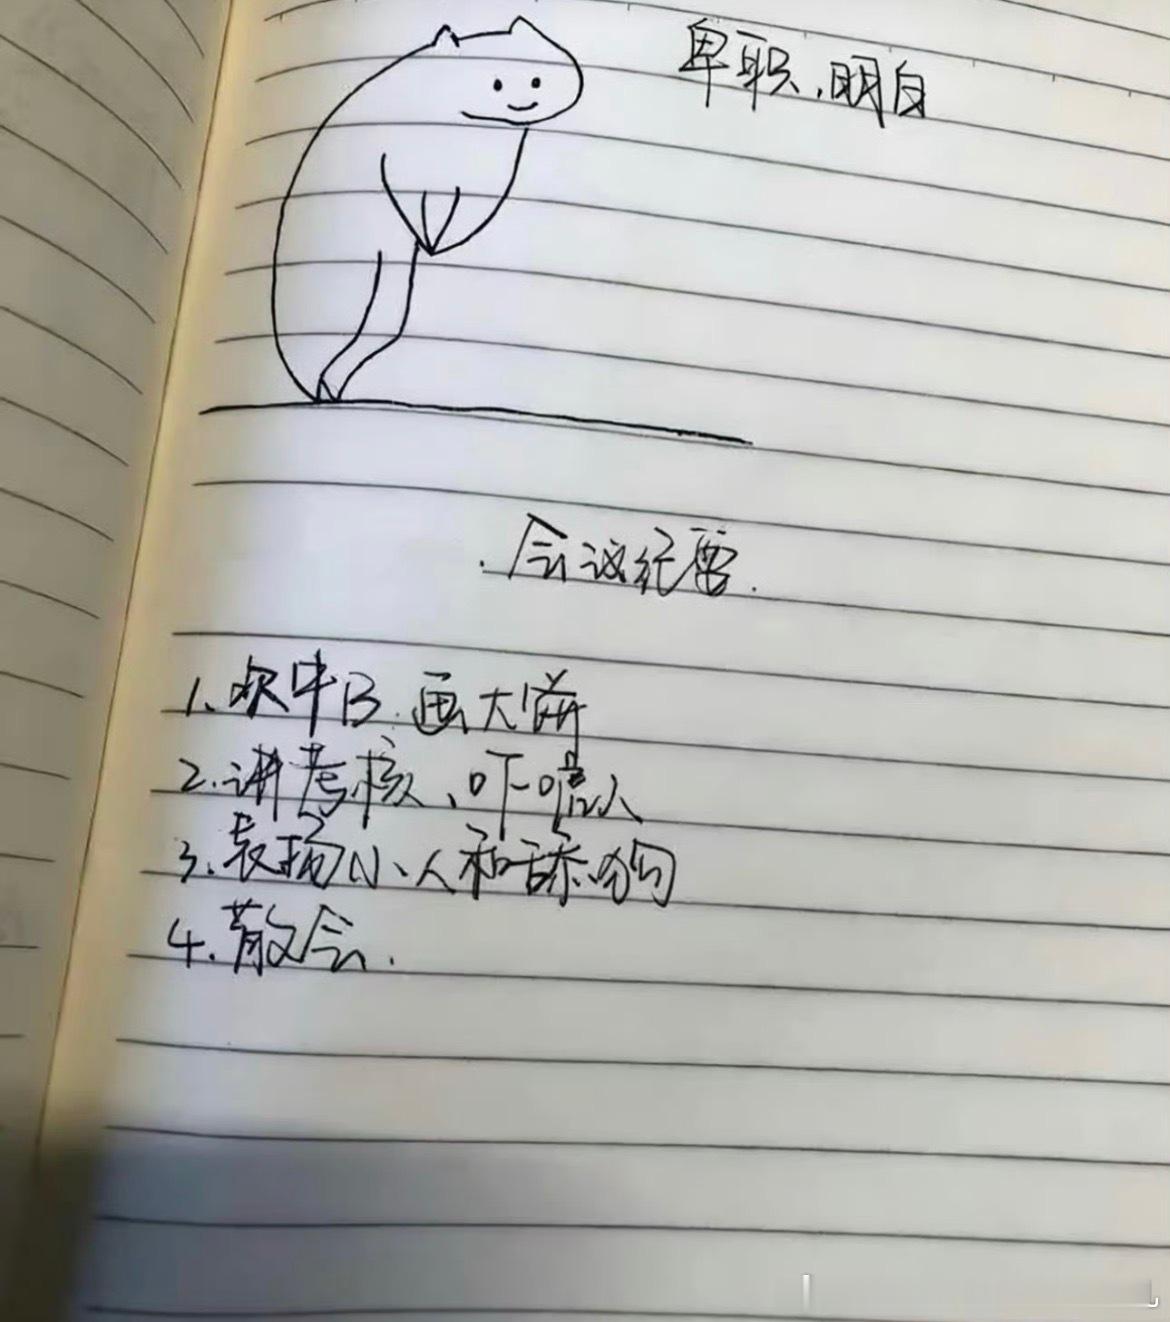 卑职,明白
.会议纪要.
1、吹牛B.画大饼
2.讲考核、吓唬人
3.表扬小人和舔狗
4.散会.